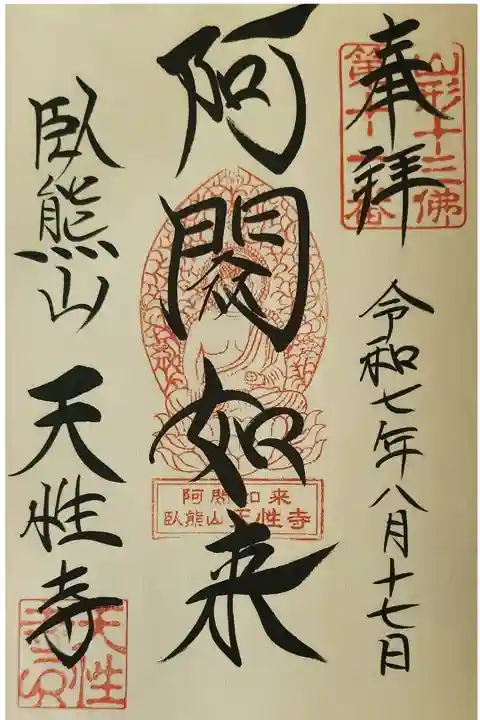 奉拝
山形十三佛
令和七年八月十七日
阿閦如来
阿閦如来
臥熊山天性寺
臥熊山
天性寺